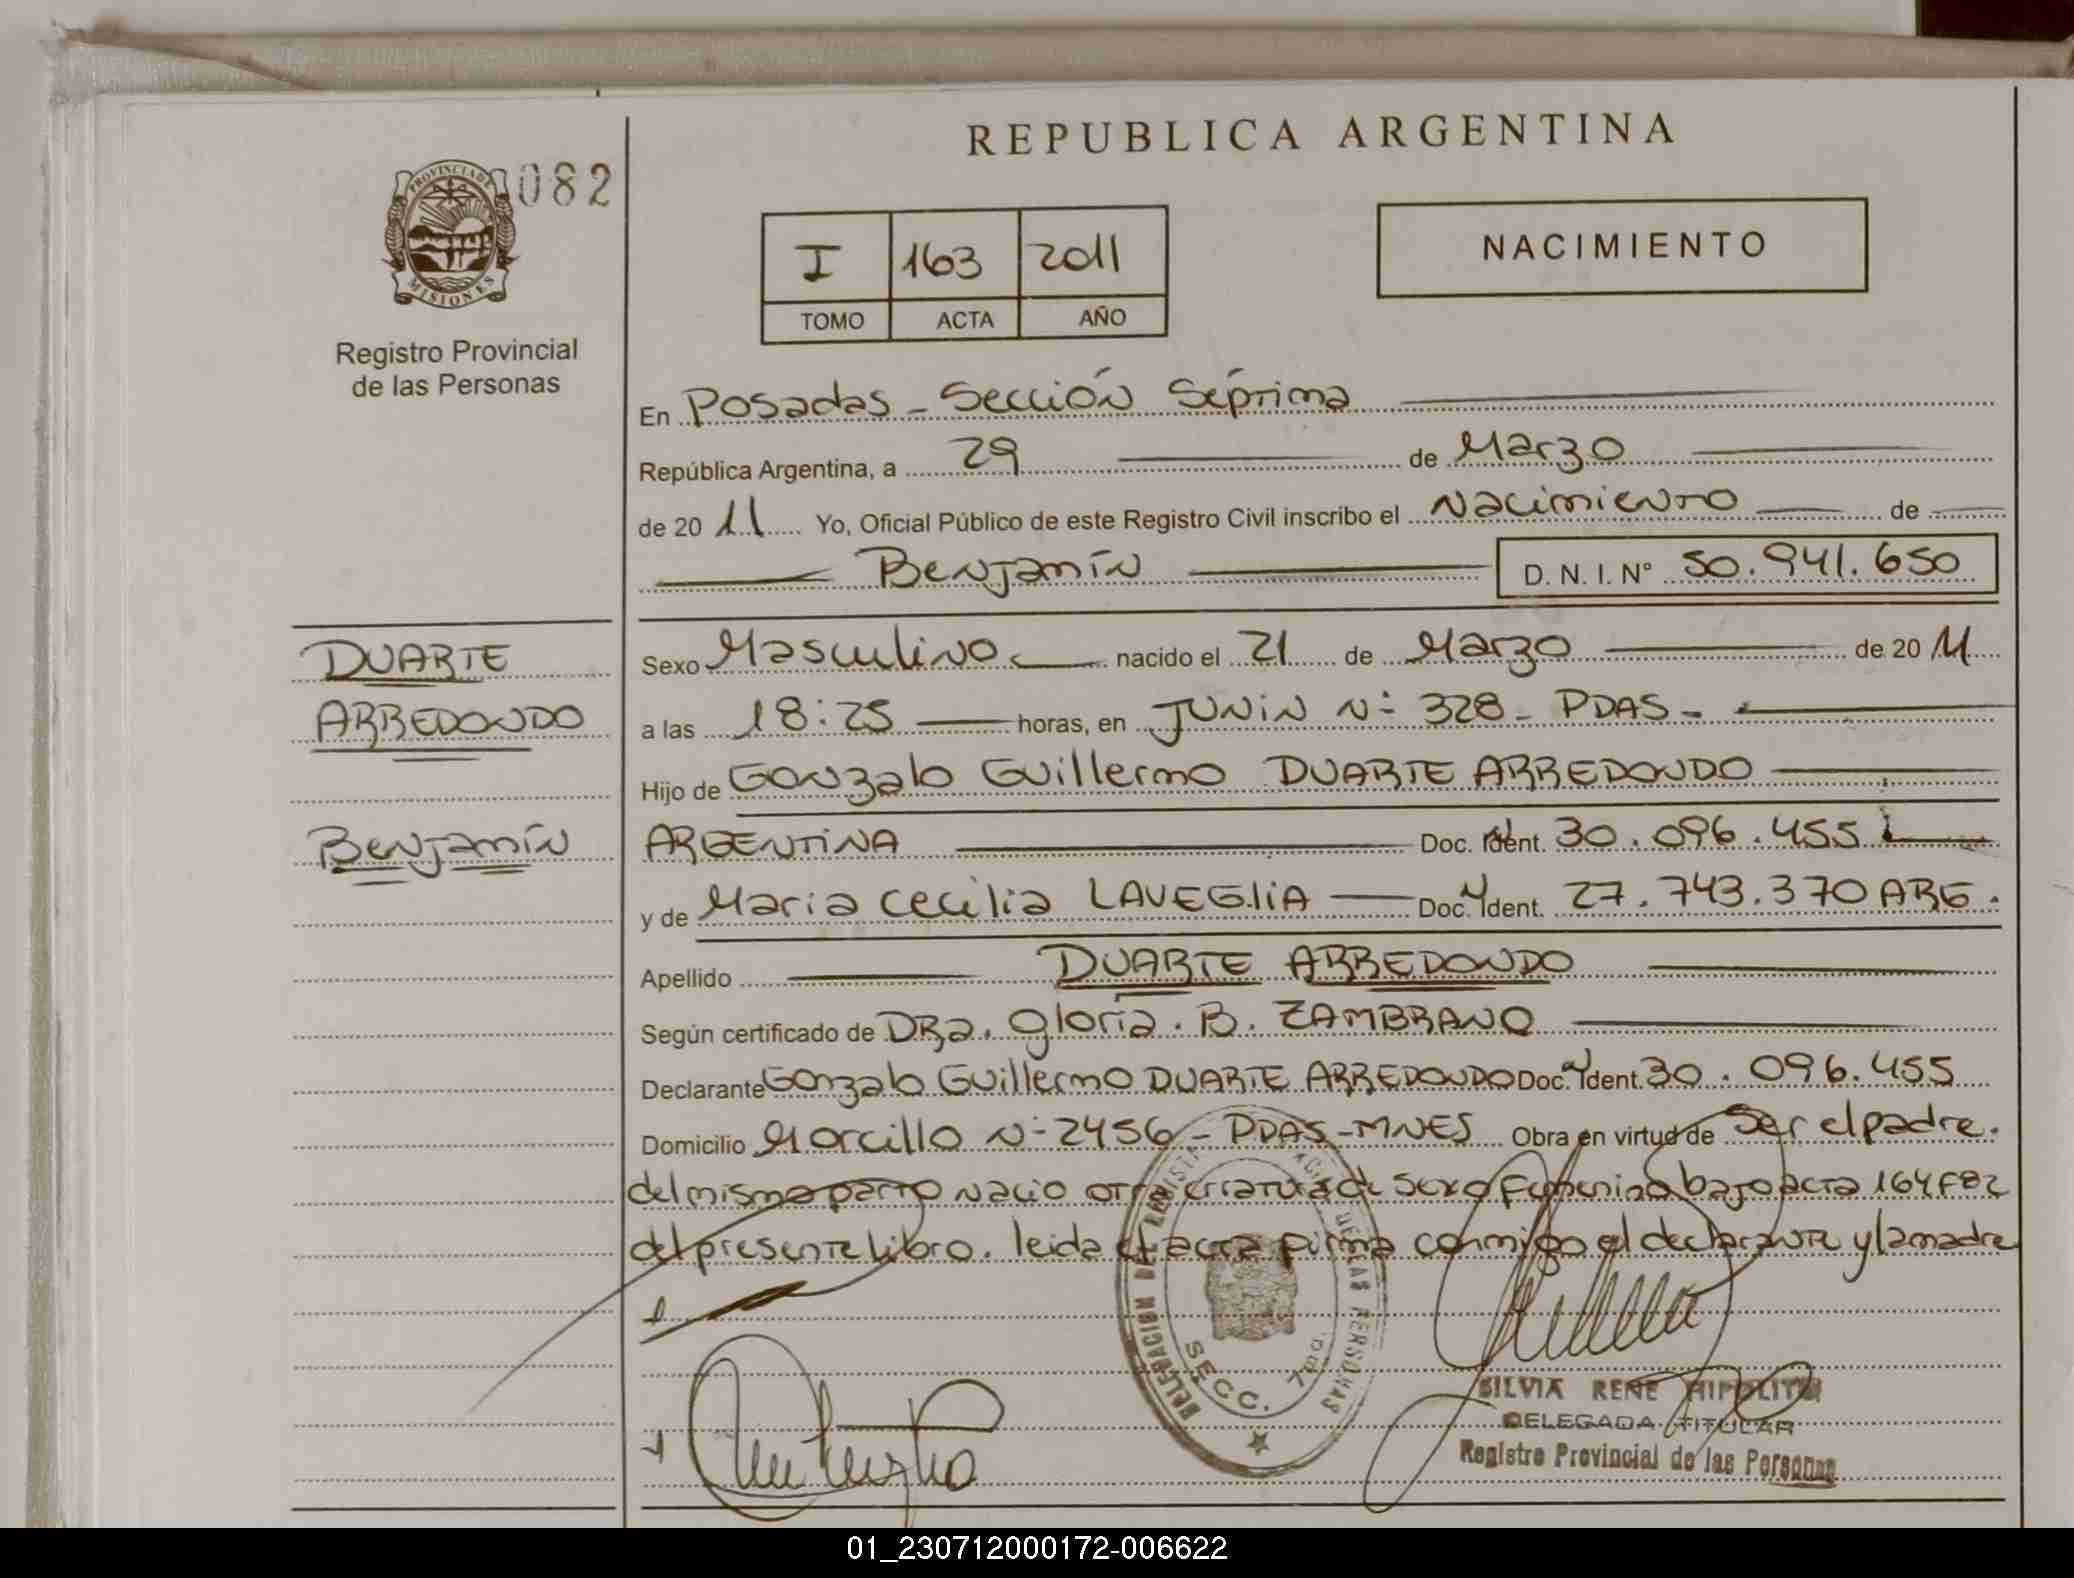 REPUBLICA ARGENTINA
PROVINCIA DE MISIONES
082
I 163 2011
TOMO ACTA AÑO
NACIMIENTO
Registro Provincial
de las Personas
En Posadas - Sección Séptima
República Argentina, a 29 de Marzo
de 2011 Yo, Oficial Público de este Registro Civil inscribo el Nacimiento de
Benjamín D. N. I. N° 50.941.650
DUARTE
ARREDONDO
Benjamín
Sexo Masculino nacido el 21 de Marzo de 2011
a las 18:25 horas, en JUNIN N- 328 - PDAS -
Hijo de Gonzalo Guillermo DUARTE ARREDONDO
ARGENTINA Doc. Ident. 30.096.455
y de Maria Cecilia LAVEGLIA Doc. Ident. 27.743.370 ARG.
Apellido DUARTE ARREDONDO
Según certificado de DRa. Gloria. B. ZAMBRANO
Declarante Gonzalo Guillermo DUARTE ARREDONDO Doc. Ident. 30.096.455
Domicilio Morcillo N- 2456 - PDAS - MNES Obra en virtud de Ser el padre.
del mismo parto nacio otra criatura de sexo femenino bajo acta 164 F82
del presente libro. leida el acta firma conmigo el declarante y la madre
SECC. 7ma.
SILVIA RENE HIPOLITO
DELEGADA TITULAR
Registro Provincial de las Personas
01_230712000172-006622